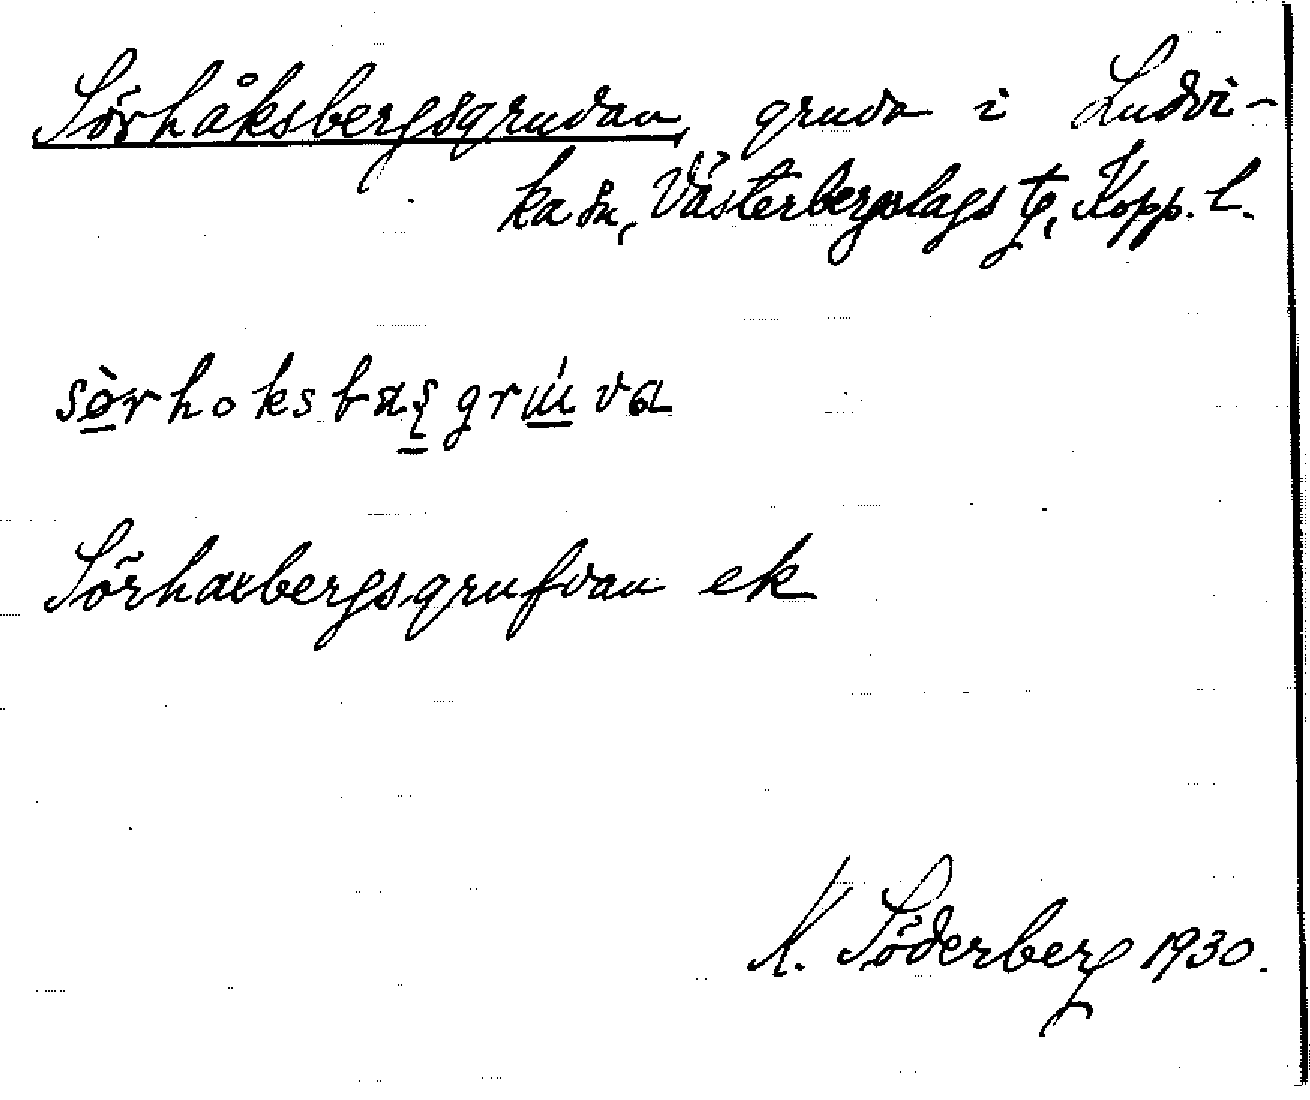 Sörhåksbergsgruvan, gruva i Ludvi-
ka sn, Västerbergslags tg, Kopp. l.
sörhoksbæʂgrúva
Sörhaxbergsgrufvan ek
K. Söderberg 1930.